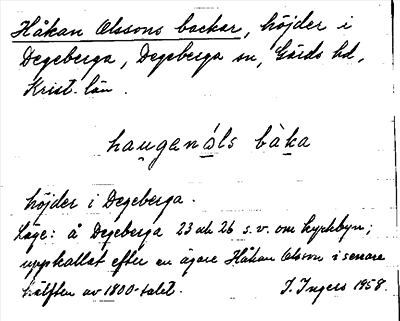 Håkan Olssons backar, höjder i
Degeberga, Degeberga sn, Gärds hd,
Krist. län.
hauganóls bàka
höjder i Degeberga.
Läge: å Degeberga 23 och 26 s.v. om kyrkbyn;
uppkallat efter en ägare Håkan Olsson i senare
hälften av 1800-talet. I. Ingers 1958.